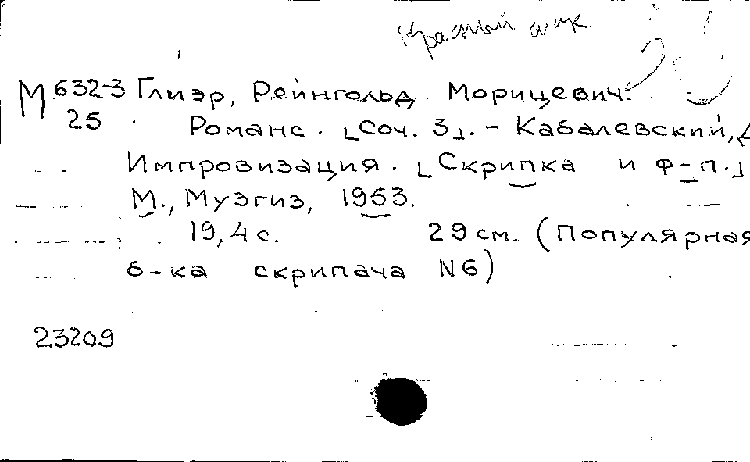 Красный
М 632-3 Глиэр, Рейнгольд Морицевич.
25 Романс. [Соч. 3]. - Кабалевский, Д
Импровизация. [Скрипка и ф-п.]
М., Музгиз, 1953.
19, 4 с. 29 см. (Популярная
б-ка скрипача №6)
23209